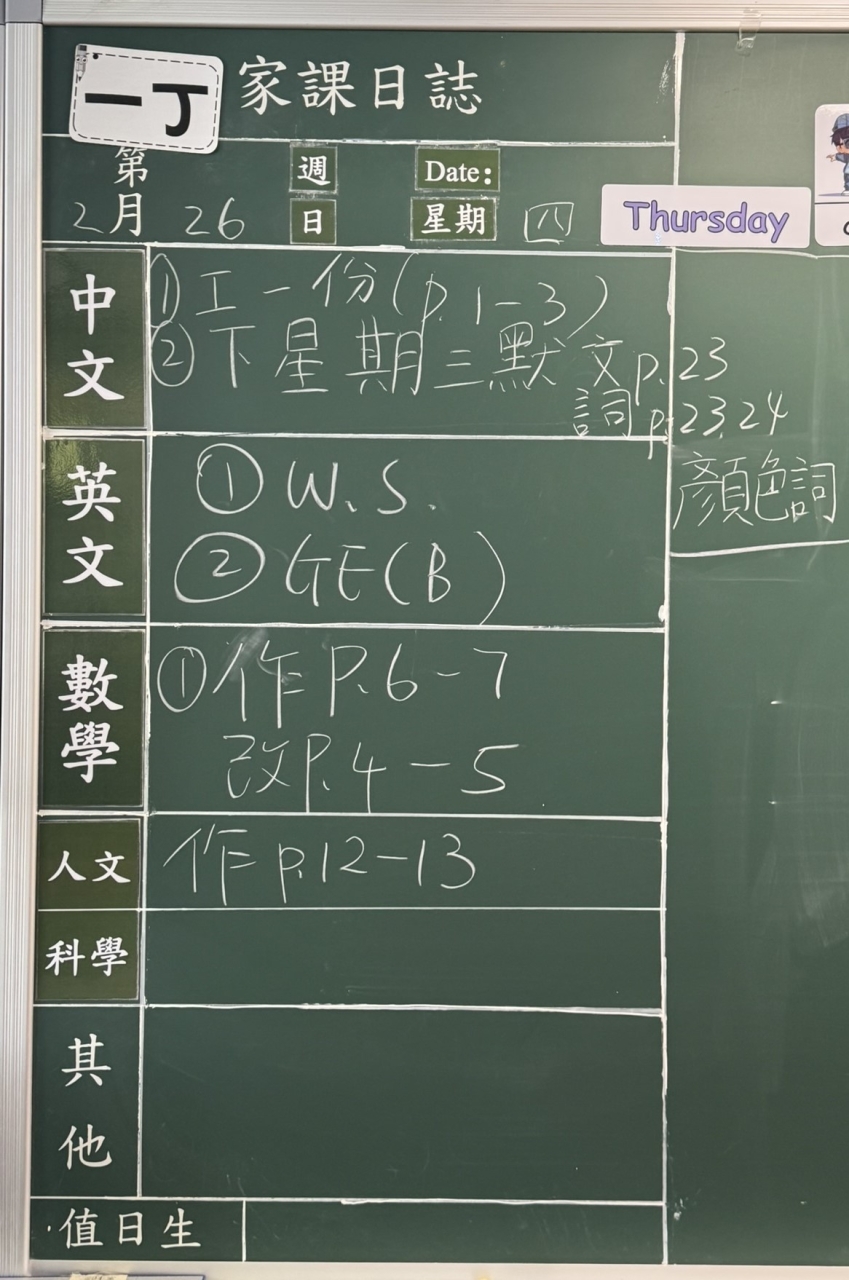 一丁 家課日誌
第 週 Date:
2月 26 日 星期 四 Thursday
中文
①工一份(p.1-3)
②下星期三默 文p.23
詞p.23,24
顏色詞
英文
① W.S.
② GE(B)
數學
①作P.6-7
改P.4-5
人文
作p.12-13
科學
其他
值日生